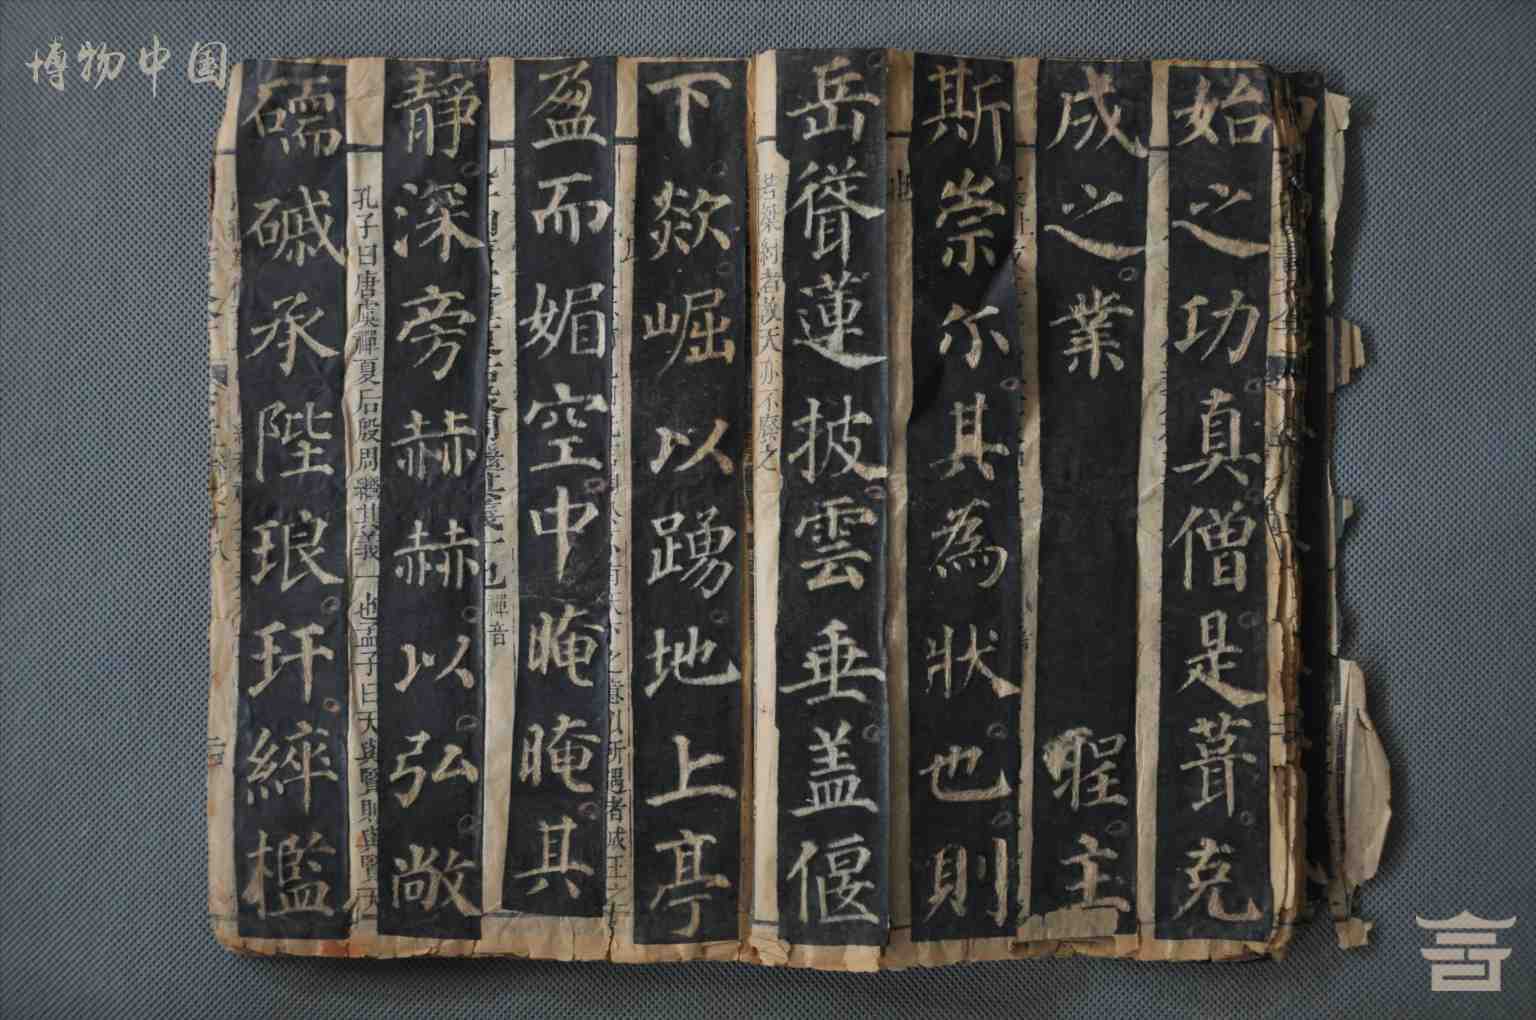 博物中国
始之功真僧是葺克
成之業 聖主
斯崇尓其為狀也則
岳聳蓮披雲垂盖偃
下欻崛以踴地上亭
盈而媚空中晻晻其
靜深旁赫赫以弘敞
礝磩承陛琅玕綷檻
昔桀紂者故天亦不廢之
禪音
孔子曰唐虞禪夏后殷周繼其義一也孟子曰天與賢則與賢天